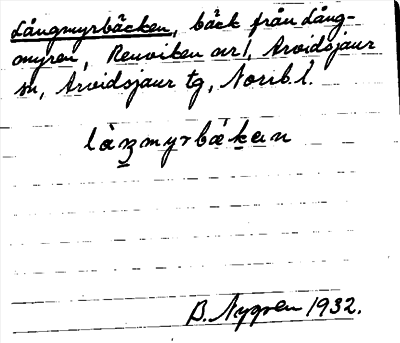 Långmyrbäcken, bäck från Lång-
myren, Renviken nr 1, Arvidsjaur
sn, Arvidsjaur tg, Norrb. l.
làŋmyrbäkan
B. Nygren 1932.